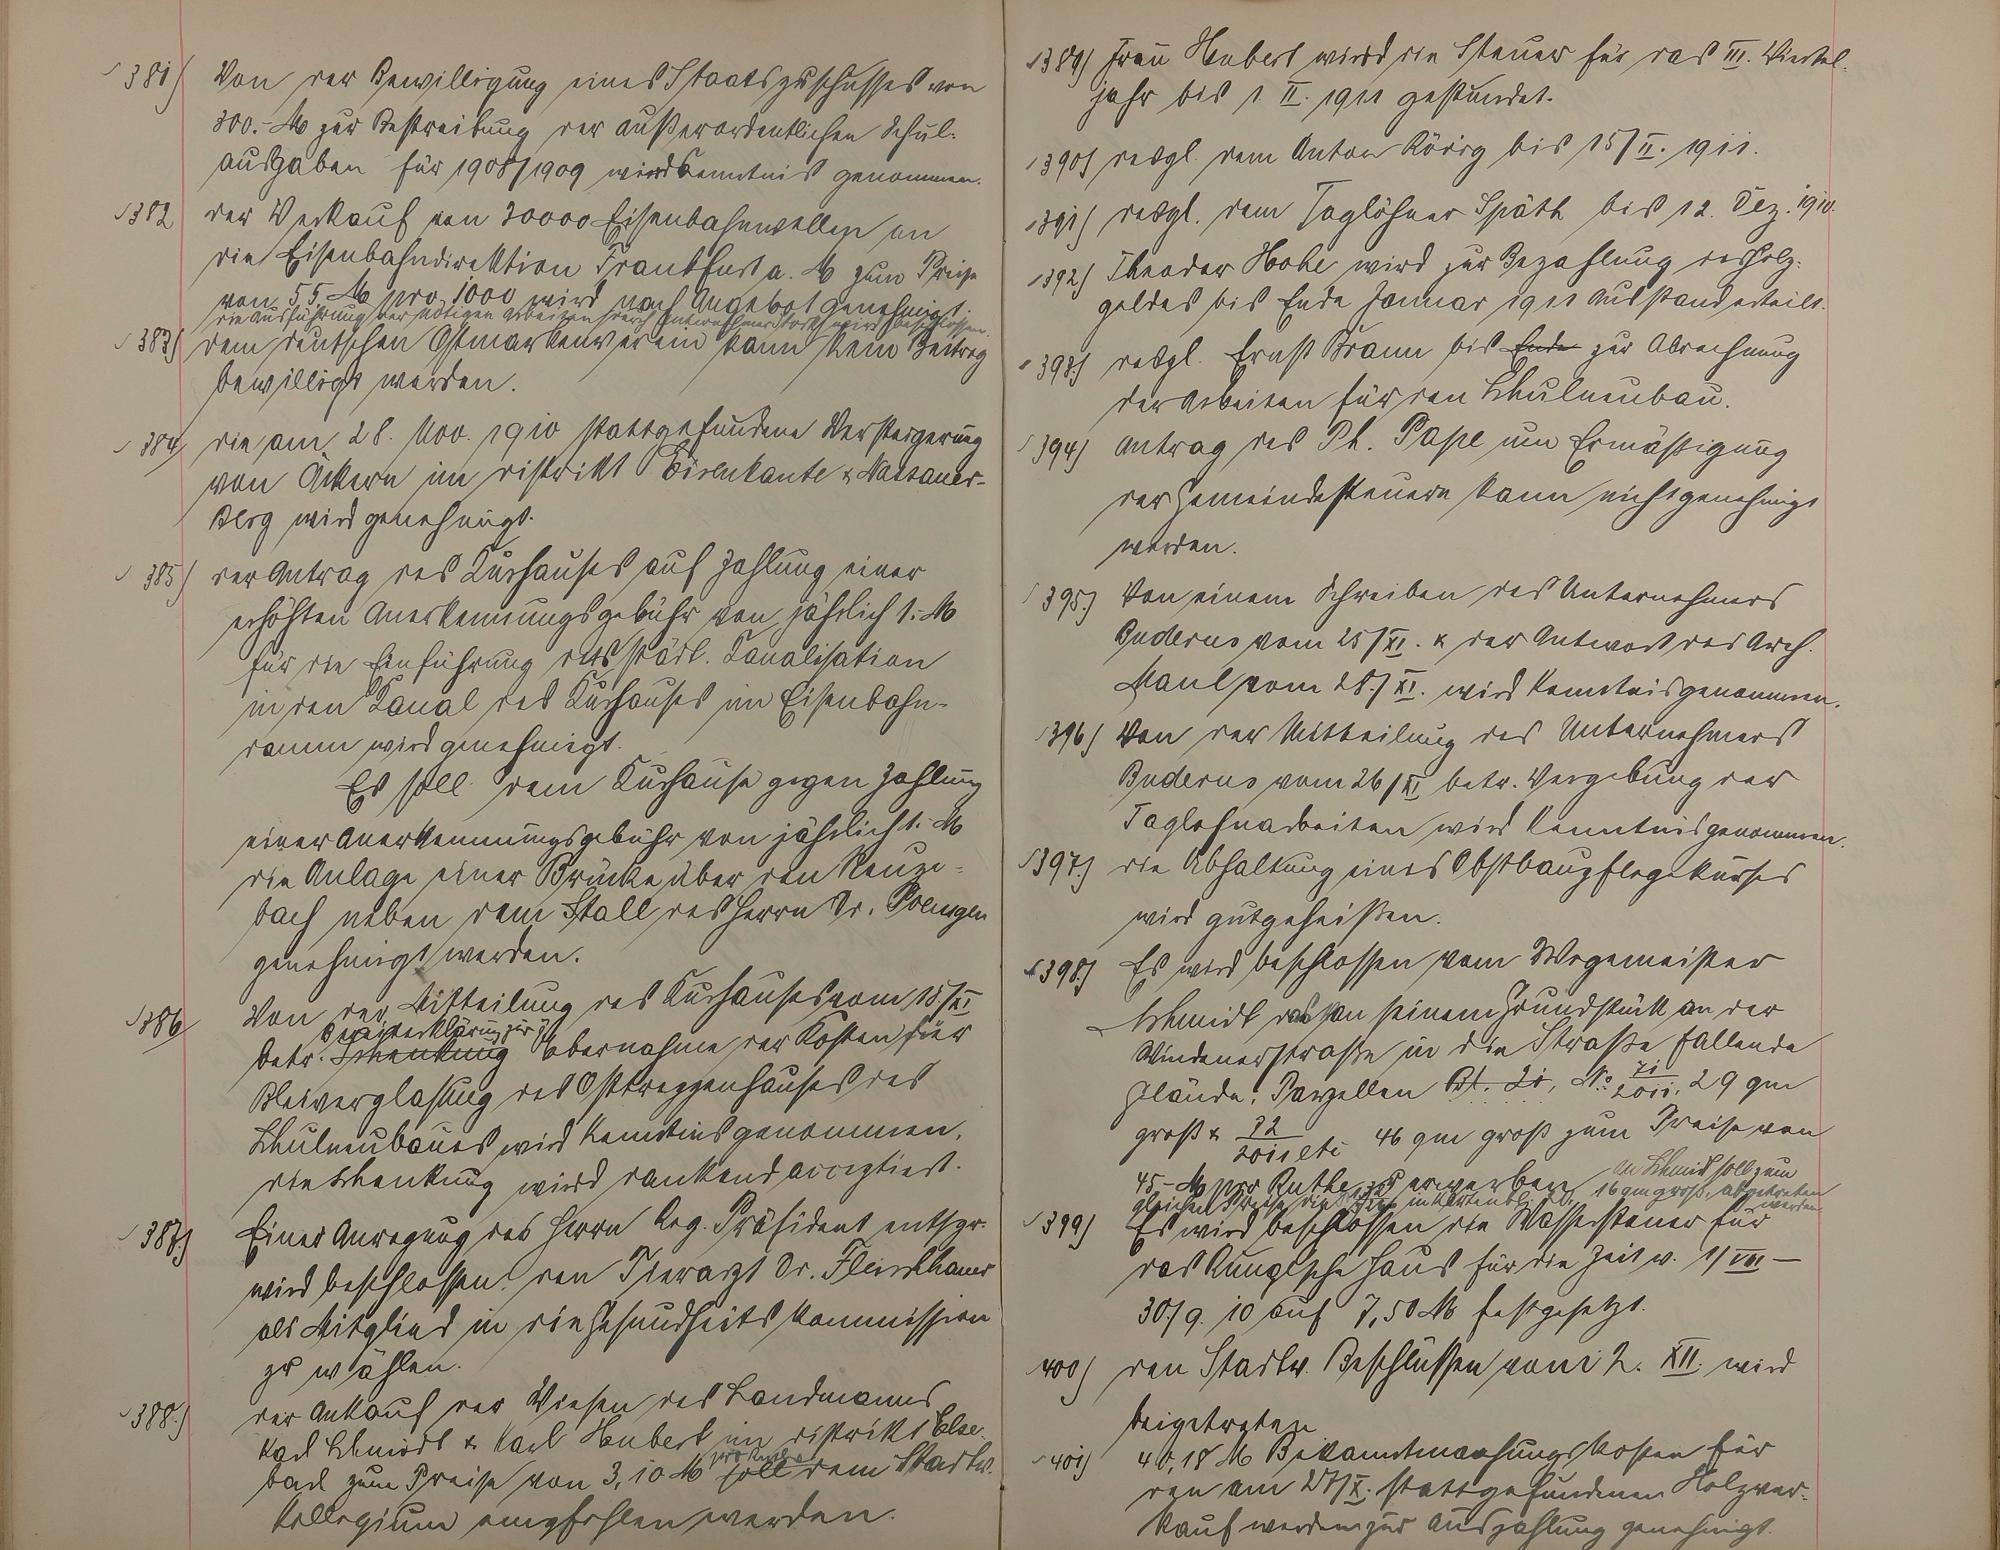 381) Von der Bewilligung eines Staatszuschusses von
300.- M zur Bestreitung der außerordentlichen Schul-
ausgaben für 1908/1909 wird Kenntnis genommen.
382 der Verkauf von 30000 Eisenbahnwellen an
die Eisenbahndirektion Frankfurt a. M zum Preise
von 55 M pro 1000 wird nach Angebot genehmigt.
die Ausführung der nötigen Arbeiten durch Unternehmer wird beschlossen.
383) dem deutschen Ostmarkenverein kann kein Beitrag
bewilligt werden.
384) die am 28. Nov. 1910 stattgefundene Versteigerung
von Äckern im distrikt Eisenkante & Nassauer-
Berg wird genehmigt.
385) der Antrag des Kurhauses auf Zahlung einer
erhöhten Anerkennungsgebühr von jährlich 1.- M
für die Einführung der städt. Kanalisation
in den Kanal des Kurhauses im Eisenbahn-
damm wird genehmigt.
Es soll dem Kurhause gegen Zahlung
einer Anerkennungsgebühr von jährlich 1.- M
die Anlage einer Brücke über den
bach neben dem Stall des Herrn Dr. Poensgen
genehmigt werden.
386 Von der Mitteilung des Kurhauses vom 18/XI
betr. Schenkung Übernahme der Kosten für
Bleiverglasung des Osttreppenhauses des
Schulneubaues wird Kenntnis genommen.
die Schenkung wird dankend acceptiert.
387.) Einer Anregung des Herrn Reg. Präsident entspr.
wird beschlossen den Tierarzt Dr. Fleischhauer
als Mitglied in die Gesundheits Kommission
zu wählen.
388.) der Ankauf der Wiesen des Landmanns
Karl Schmidt & Karl Heubert im distrikt Else-
bach zum Preise von 3,10 M pro Ruthe soll dem Stadtv.
Kollegium empfohlen werden.
389) Frau Heubert wird die Steuer für das III. Viertel-
jahr bis 1. II. 1911 gestundet.
390) desgl. dem Anton bis 15/II. 1911.
391) desgl. dem Taglöhner Späth bis 12. Dez. 1910.
392) Theodor Hohe wird zur Bezahlung des Holz-
geldes bis Ende Januar 1911 Ausstand erteilt.
393.) desgl. Ernst Braun bis Ende zur Abrechnung
der Arbeiten für den Schulneubau.
394) Antrag des Ph. Pape um Ermäßigung
der Gemeindesteuern kann nicht genehmigt
werden.
395.) Von einem Schreiben des Unternehmers
Buderus vom 25/XI. & der Antwort des Arch.
Maul vom 28./XI. wird Kenntnis genommen.
396) Von der Mitteilung des Unternehmers
Buderus vom 26/XI betr. Vergebung der
Taglohnarbeiten wird Kenntnis genommen.
397.) die Abhaltung eines Obstbaupflegekurses
wird gutgeheißen.
398.) Es wird beschlossen vom Wegemeister
Schmidt das von seinem Grundstück an der
Windenerstraße in die Straße fallende
Gelände, Parzellen Bl. 21, No 71/2011, 29 qm
groß & 92/2011 etc 46 qm groß zum Preise von
45 - M pro Ruthe zu erwerben. An Schmidt soll zum
gleichen Preise die 16 qm groß, abgetreten
werden
399) Es wird beschlossen die Wassersteuer für
das Haus für die Zeit v. 1/VIII —
30/9. 10 auf 7,50 M festgesetzt.
400) den Stadtv. Beschlüssen vom 2. XII. wird
beigetreten
401) 40,18 M Bekanntmachungskosten für
den am 27/X. stattgefundenen Holzver-
kauf werden zur Auszahlung genehmigt.